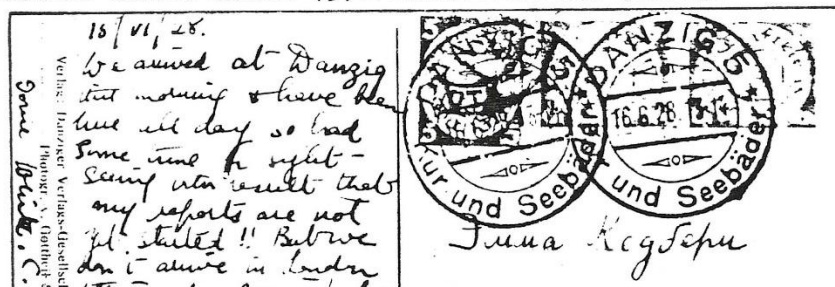 15/VI/28.
We arrived at Danzig
this morning & have been
here all day so had
some time for sight-
seeing with result that
my reports are not
yet started!! But we
don't arrive in London
Verlag: Danziger Verlags-Gesellsch
Photogr. A. Gottheil
DANZIG 5
Kur und Seebäder
DANZIG 5
16.6.28
und Seebäder
Эмма Кедбери